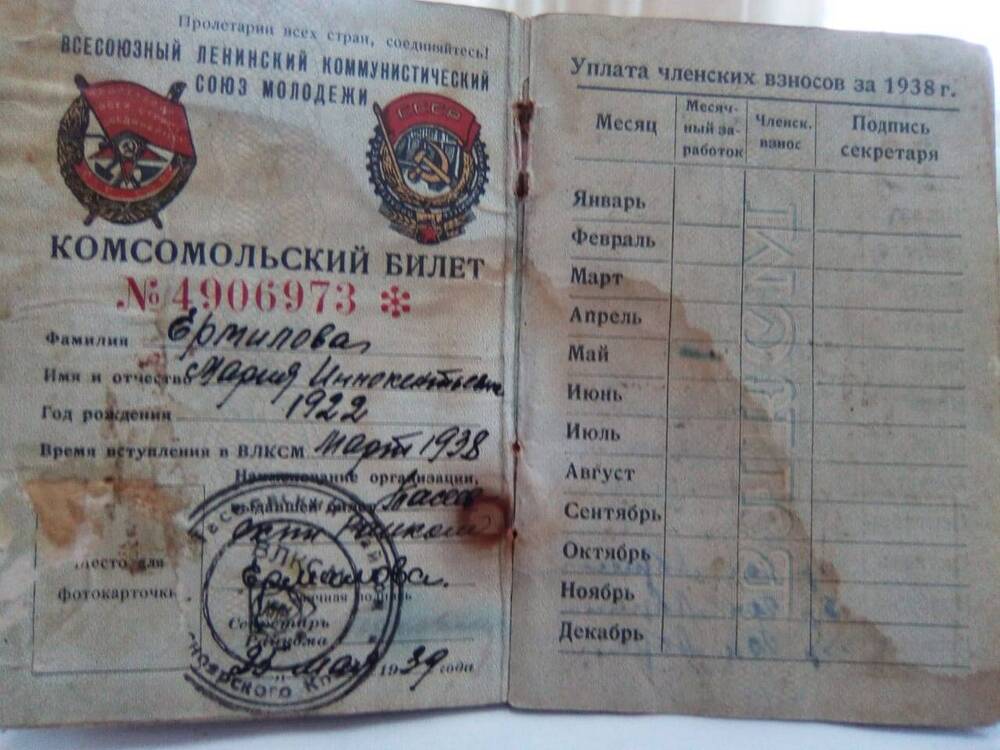 Пролетарии всех стран, соединяйтесь!
ВСЕСОЮЗНЫЙ ЛЕНИНСКИЙ КОММУНИСТИЧЕСКИЙ
СОЮЗ МОЛОДЕЖИ
СССР
КОМСОМОЛЬСКИЙ БИЛЕТ
№ 4906973 *
Фамилия Ермилова
Имя и отчество Мария Иннокентьевна
Год рождения 1922
Время вступления в ВЛКСМ март 1938
Наименование организации,
выдавшей билет
Райком
ВЛКСМ
Место для
фотокарточки
Ермилова
Личная подпись
Секретарь
Райкома
мая 1939 года
Уплата членских взносов за 1938 г.
Месяц
Месяч-
ный за-
работок
Членск.
взнос
Подпись
секретаря
Январь
Февраль
Март
Апрель
Май
Июнь
Июль
Август
Сентябрь
Октябрь
Ноябрь
Декабрь
ВЛКСМ